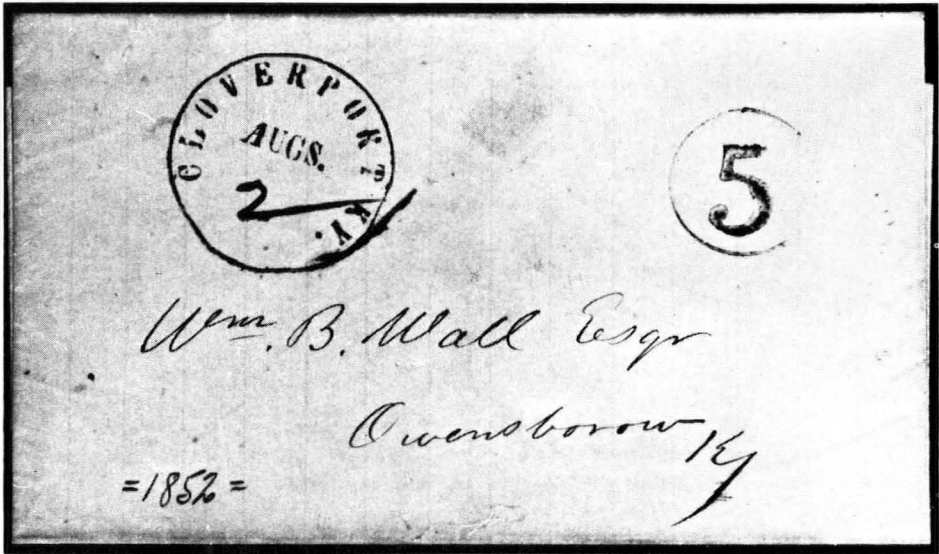 CLOVERPORT KY.
AUGS.
2
5
Wm. B. Wall Esqr
Owensborow
Ky
=1852=